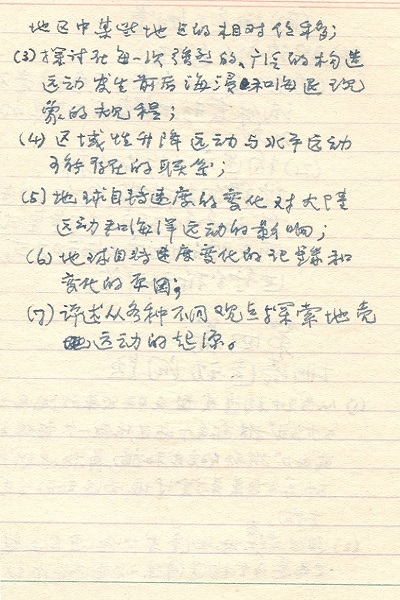 地区中某些地点的相对位移；
(3)探讨在每一次强烈的、广泛的构造
运动发生前后海浸和海退现
象的规程；
(4)区域性升降运动与水平运动
可能存在的联系；
(5)地球自转速度的变化对大陆
运动和海洋运动的影响；
(6)地球自转速度变化的记录和
变化的原因；
(7)详述从各种不同观点探索地壳
运动的起源。